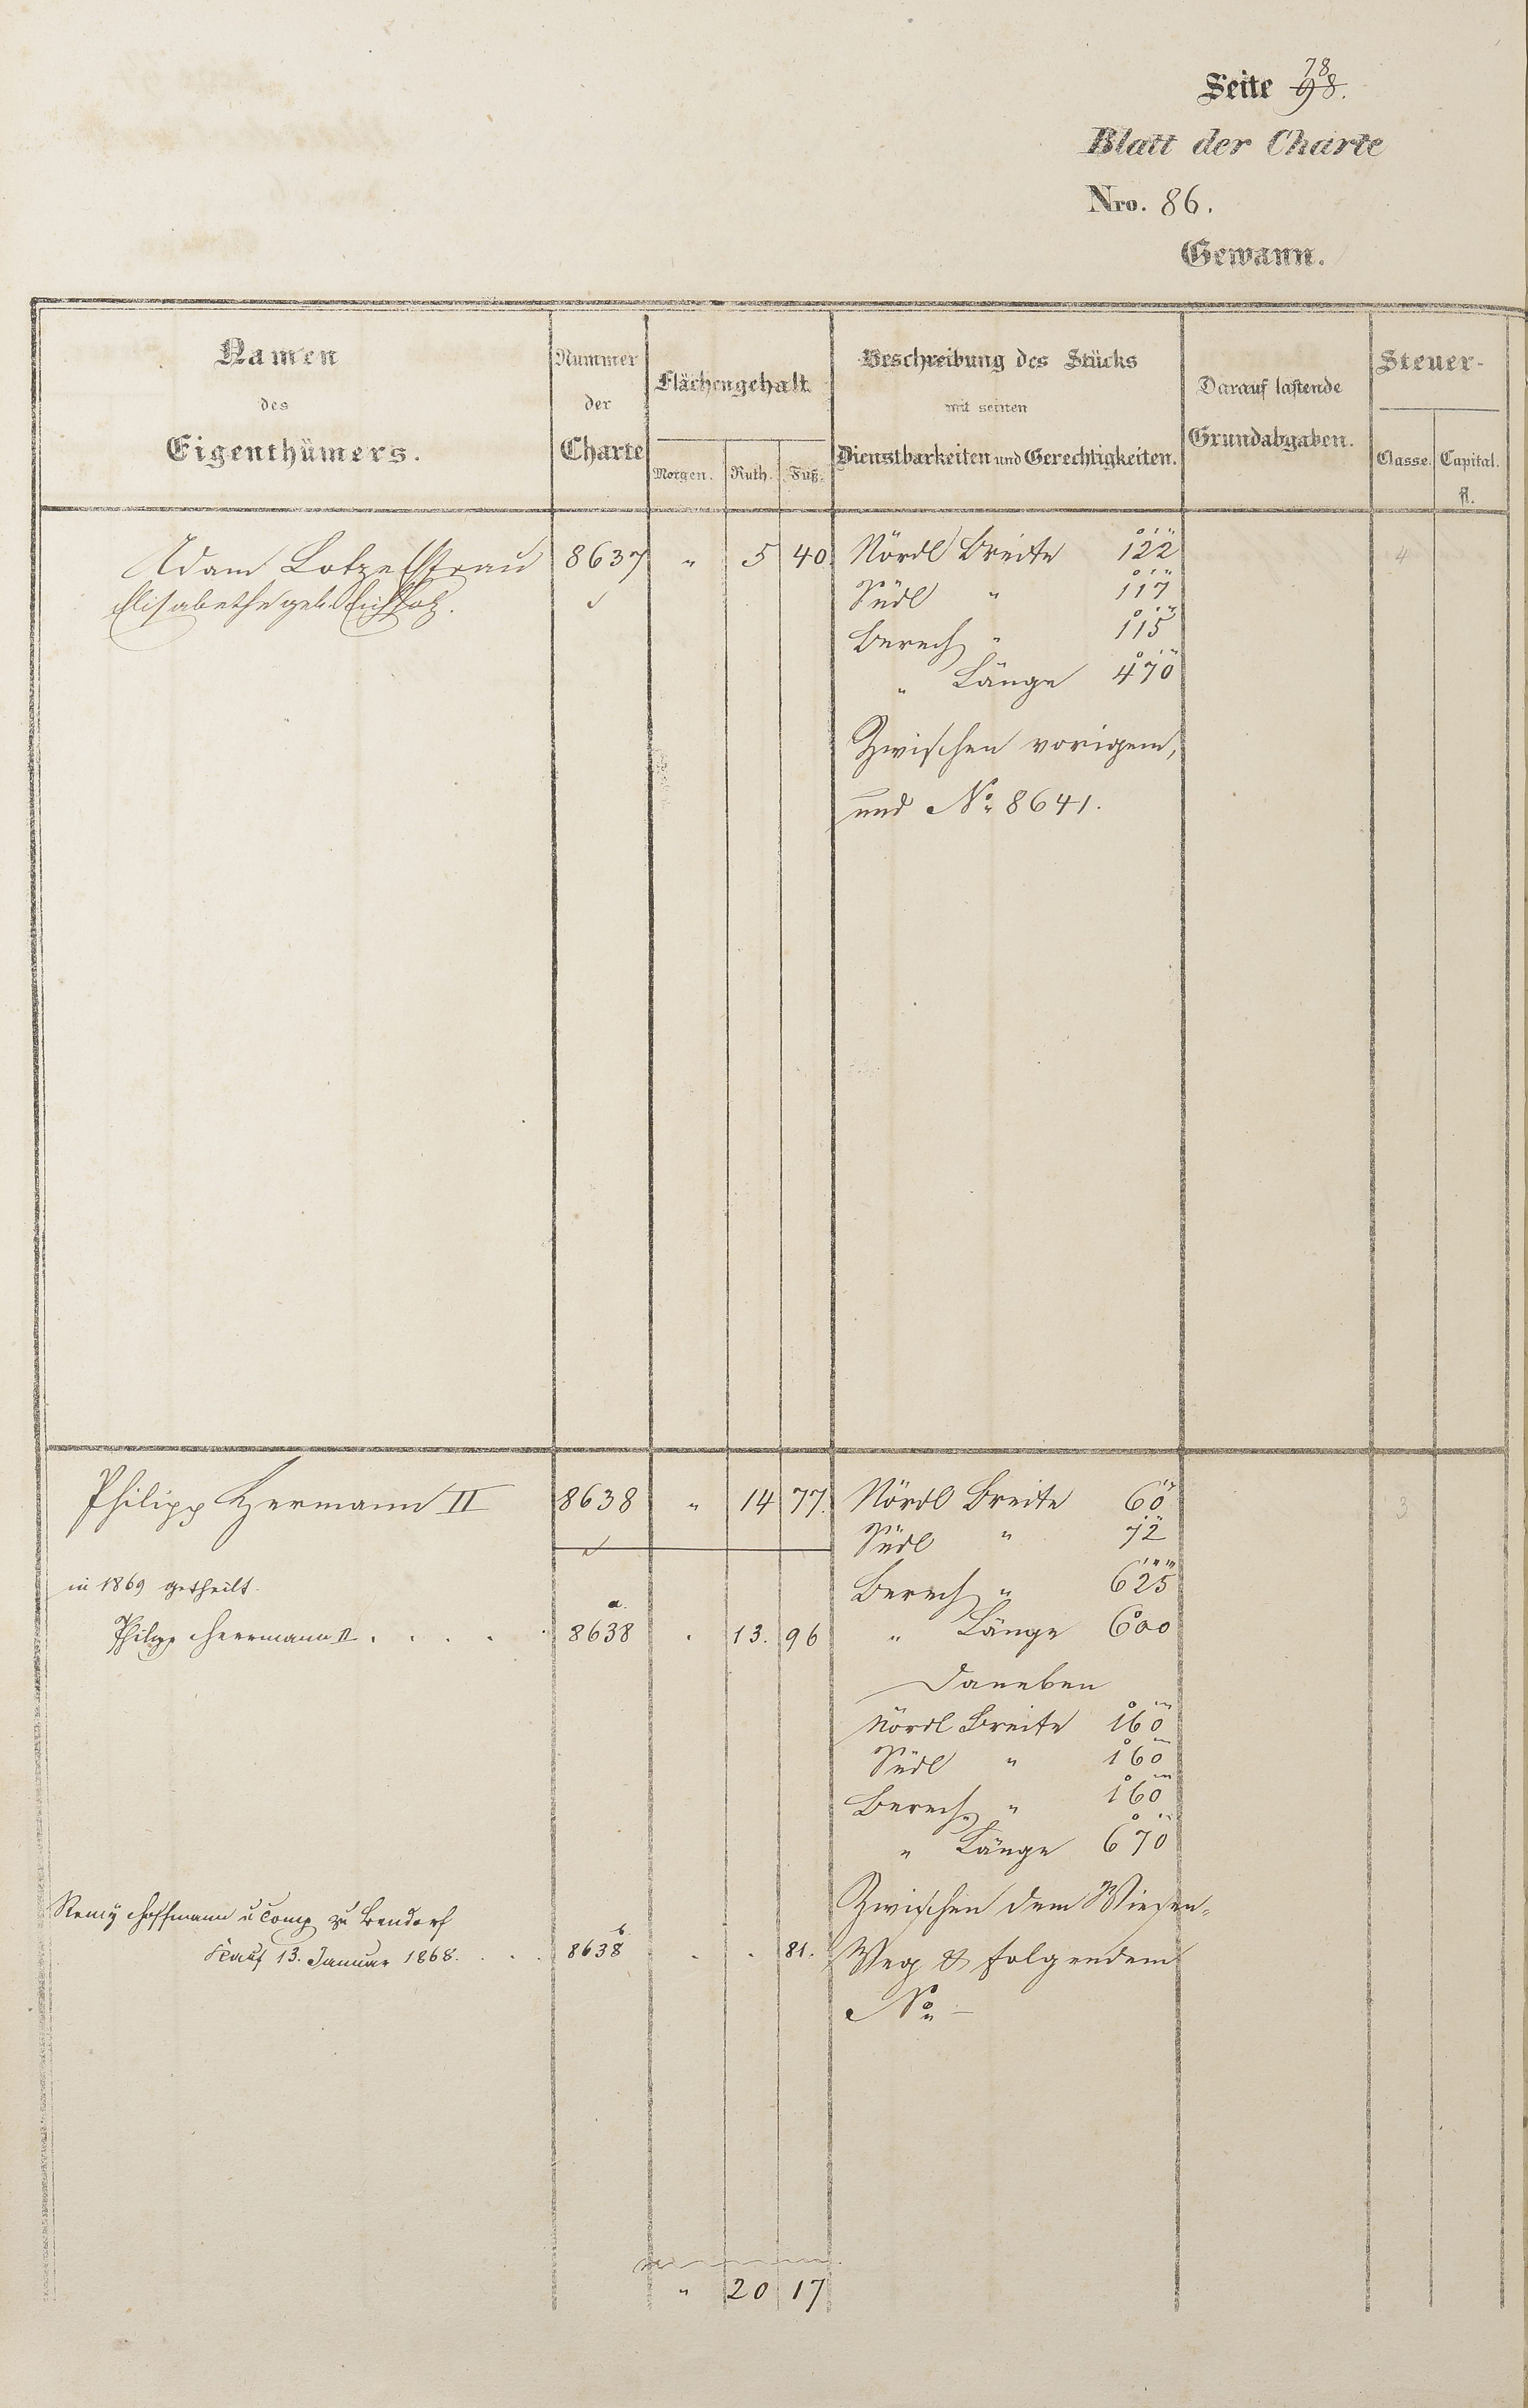 78
Seite 98.
Blatt der Charte
Nro. 86.
Gewann.
Namen des Eigenthümers.
Nummer der Charte
Flächengehalt.
Morgen. Ruth. Fuß.
Beschreibung des Stücks mit seinen Dienstbarkeiten und Gerechtigkeiten.
Darauf lastende Grundabgaben.
Steuer-
Classe. Capital.
fl.
Adam Lotzes Frau 8637 " 5 40 Nördl Breite 122 4
Elisabethe geb. Südl " 117
Berech " 115
" Länge 470
Zwischen vorigem,
und No 8641.
Philipp Hermann II 8638 " 14 77. Nördl Breite 60 3
Südl " 72
in 1869 getheilt. Berech " 625
Philipp Herrmann II . . . . . 8638 a. . 13. 96 " Länge 600
Daneben
Nördl Breite 160
Südl " 160
Berech " 160
" Länge 670
Remy Hoffmann u Comp zu Bendorf Zwischen dem Wiesen-
Kauf 13. Januar 1868. . . . 8638 b . . 81. Weg & folgendem
No. –
" 20 17